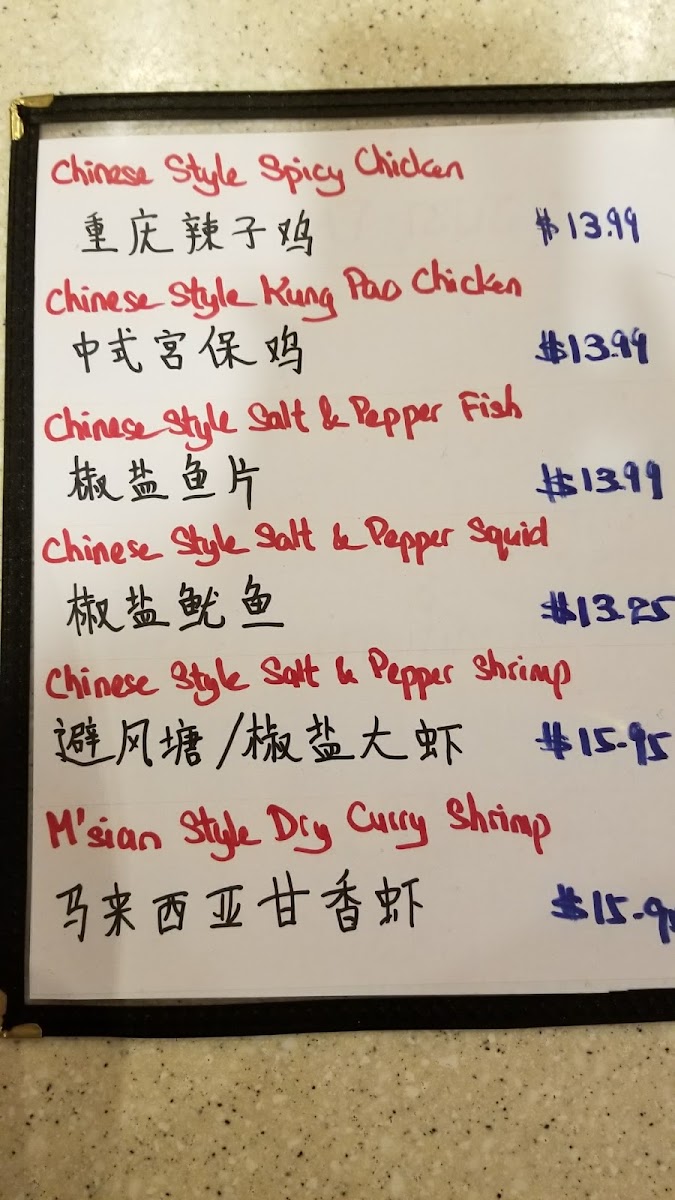 Chinese Style Spicy Chicken
重庆辣子鸡 $13.99
Chinese Style Kung Pao Chicken
中式宫保鸡 $13.99
Chinese Style Salt & Pepper Fish
椒盐鱼片 $13.99
Chinese Style Salt & Pepper Squid
椒盐鱿鱼 $13.25
Chinese Style Salt & Pepper Shrimp
避风塘/椒盐大虾 $15.95
M'sian Style Dry Curry Shrimp
马来西亚甘香虾